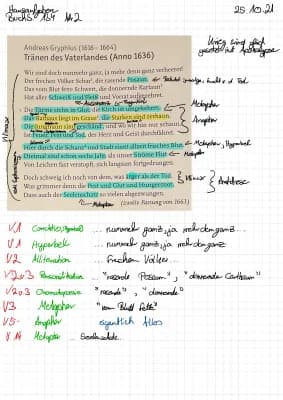 Hausaufgaben
Buch S. 154 Nr. 2
25.10.21
Andreas Gryphius (1616 – 1664)
Tränen des Vaterlandes (Anno 1636)
Wir sind doch nunmehr ganz, ja mehr denn ganz verheeret!
Der frechen Völker Schar, die rasende Posaun,
Das vom Blut fette Schwert, die donnernde Kartaun
Hat aller Schweiß und Fleiß und Vorrat aufgezehret.
Die Türme stehn in Glut, die Kirch ist umgekehret.
Das Rathaus liegt im Graus, die Starken sind zerhaun,
Die Jungfraun sind geschändt, und wo wir hin nur schaun,
Ist Feuer, Pest und Tod, der Herz und Geist durchfähret.
Hier durch die Schanz und Stadt rinnt allzeit frisches Blut.
Dreimal sind schon sechs Jahr, als unser Ströme Flut
Von Leichen fast verstopft, sich langsam fortgedrungen.
Doch schweig ich noch von dem, was ärger als der Tod,
Was grimmer denn die Pest und Glut und Hungersnot:
Dass auch der Seelenschatz so vielen abgezwungen.
(zweite Fassung von 1663)
Metapher
Anapher
Metapher, Hyperbel
Metapher
Klimax
Antithese
Metapher
Klimax
V1 ... nunmehr ganz, ja mehr denn ganz
V1 Hyperbel ... nunmehr ganz, ja mehr denn ganz
V2 Alliteration ... frechen Völker...
V2 o. 3 Personifikation ... "rasende Posaun", "donnernde Kartaun"
V2 o. 3 "rasende", "donnernde"
V3 Metapher "vom Blut fette"
V5- Anapher eigentlich Alles
V14 Metapher ... Seelenschatz...